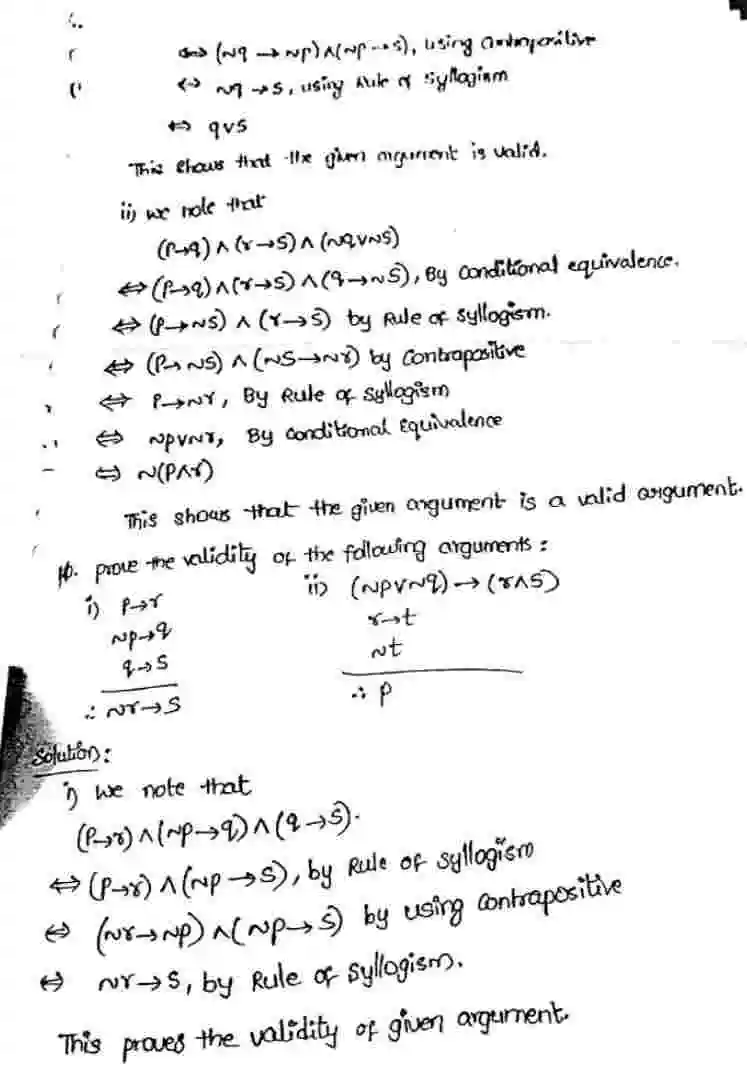 ⇔ (~q → ~p) ∧ (~p → s), using contrapositive
⇔ ~q → s, using Rule of Syllogism
⇔ q∨s
This shows that the given argument is valid.
ii) we note that
(p→q) ∧ (r→s) ∧ (~q∨~s)
⇔ (p→q) ∧ (r→s) ∧ (q→~s), By Conditional equivalence.
⇔ (p→~s) ∧ (r→s) by Rule of Syllogism.
⇔ (p→~s) ∧ (~s→~r) by Contrapositive
⇔ p→~r, By Rule of Syllogism
⇔ ~p∨~r, By Conditional Equivalence
⇔ ~(p∧r)
This shows that the given argument is a valid argument.
prove the validity of the following arguments :
i) p→r
~p→q
q→s
∴ ~r→s
ii) (~p∨~q) → (r∧s)
r→t
~t
∴ p
Solution:
i) we note that
(p→r) ∧ (~p→q) ∧ (q→s).
⇔ (p→r) ∧ (~p→s), by Rule of Syllogism
⇔ (~r→~p) ∧ (~p→s) by using Contrapositive
⇔ ~r→s, by Rule of Syllogism.
This proves the validity of given argument.